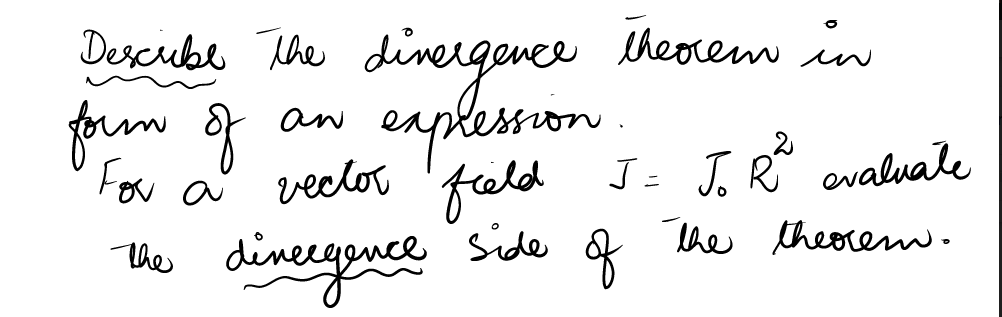 Describe the divergence theorem in
form of an expression.
For a vector field J = J₀ R² evaluate
the divergence side of the theorem.